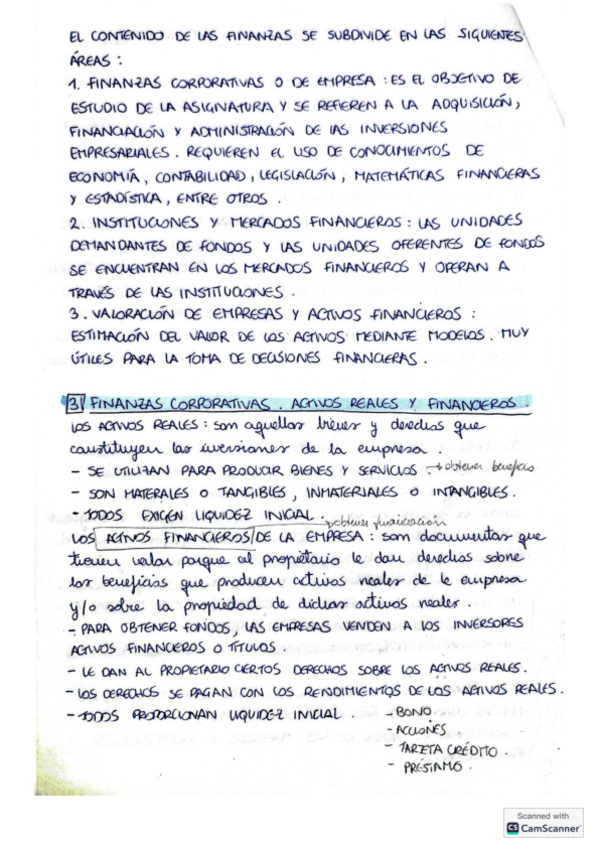 EL CONTENIDO DE LAS FINANZAS SE SUBDIVIDE EN LAS SIGUIENTES
ÁREAS :
1. FINANZAS CORPORATIVAS O DE EMPRESA : ES EL OBJETIVO DE
ESTUDIO DE LA ASIGNATURA Y SE REFIEREN A LA ADQUISICIÓN,
FINANCIACIÓN Y ADMINISTRACIÓN DE LAS INVERSIONES
EMPRESARIALES. REQUIEREN EL USO DE CONOCIMIENTOS DE
ECONOMÍA, CONTABILIDAD, LEGISLACIÓN, MATEMÁTICAS FINANCIERAS
Y ESTADÍSTICA, ENTRE OTROS.
2. INSTITUCIONES Y MERCADOS FINANCIEROS : LAS UNIDADES
DEMANDANTES DE FONDOS Y LAS UNIDADES OFERENTES DE FONDOS
SE ENCUENTRAN EN LOS MERCADOS FINANCIEROS Y OPERAN A
TRAVÉS DE LAS INSTITUCIONES.
3. VALORACIÓN DE EMPRESAS Y ACTIVOS FINANCIEROS :
ESTIMACIÓN DEL VALOR DE LOS ACTIVOS MEDIANTE MODELOS. MUY
ÚTILES PARA LA TOMA DE DECISIONES FINANCIERAS.
3 FINANZAS CORPORATIVAS. ACTIVOS REALES Y FINANCIEROS.
LOS ACTIVOS REALES : son aquellos bienes y derechos que
constituyen las inversiones de la empresa.
- SE UTILIZAN PARA PRODUCIR BIENES Y SERVICIOS. → obtener beneficio
- SON MATERIALES O TANGIBLES, INMATERIALES O INTANGIBLES.
- TODOS EXIGEN LIQUIDEZ INICIAL.
obtener financiación
LOS ACTIVOS FINANCIEROS DE LA EMPRESA : son documentos que
tienen valor porque al propietario le dan derechos sobre
los beneficios que producen activos reales de le empresa
y/o sobre la propiedad de dichos activos reales.
- PARA OBTENER FONDOS, LAS EMPRESAS VENDEN A LOS INVERSORES
ACTIVOS FINANCIEROS O TÍTULOS.
- LE DAN AL PROPIETARIO CIERTOS DERECHOS SOBRE LOS ACTIVOS REALES.
- LOS DERECHOS SE PAGAN CON LOS RENDIMIENTOS DE LOS ACTIVOS REALES.
- TODOS PROPORCIONAN LIQUIDEZ INICIAL.
- BONO
- ACCIONES
- TARJETA CRÉDITO.
- PRÉSTAMO.
Scanned with
CS CamScanner